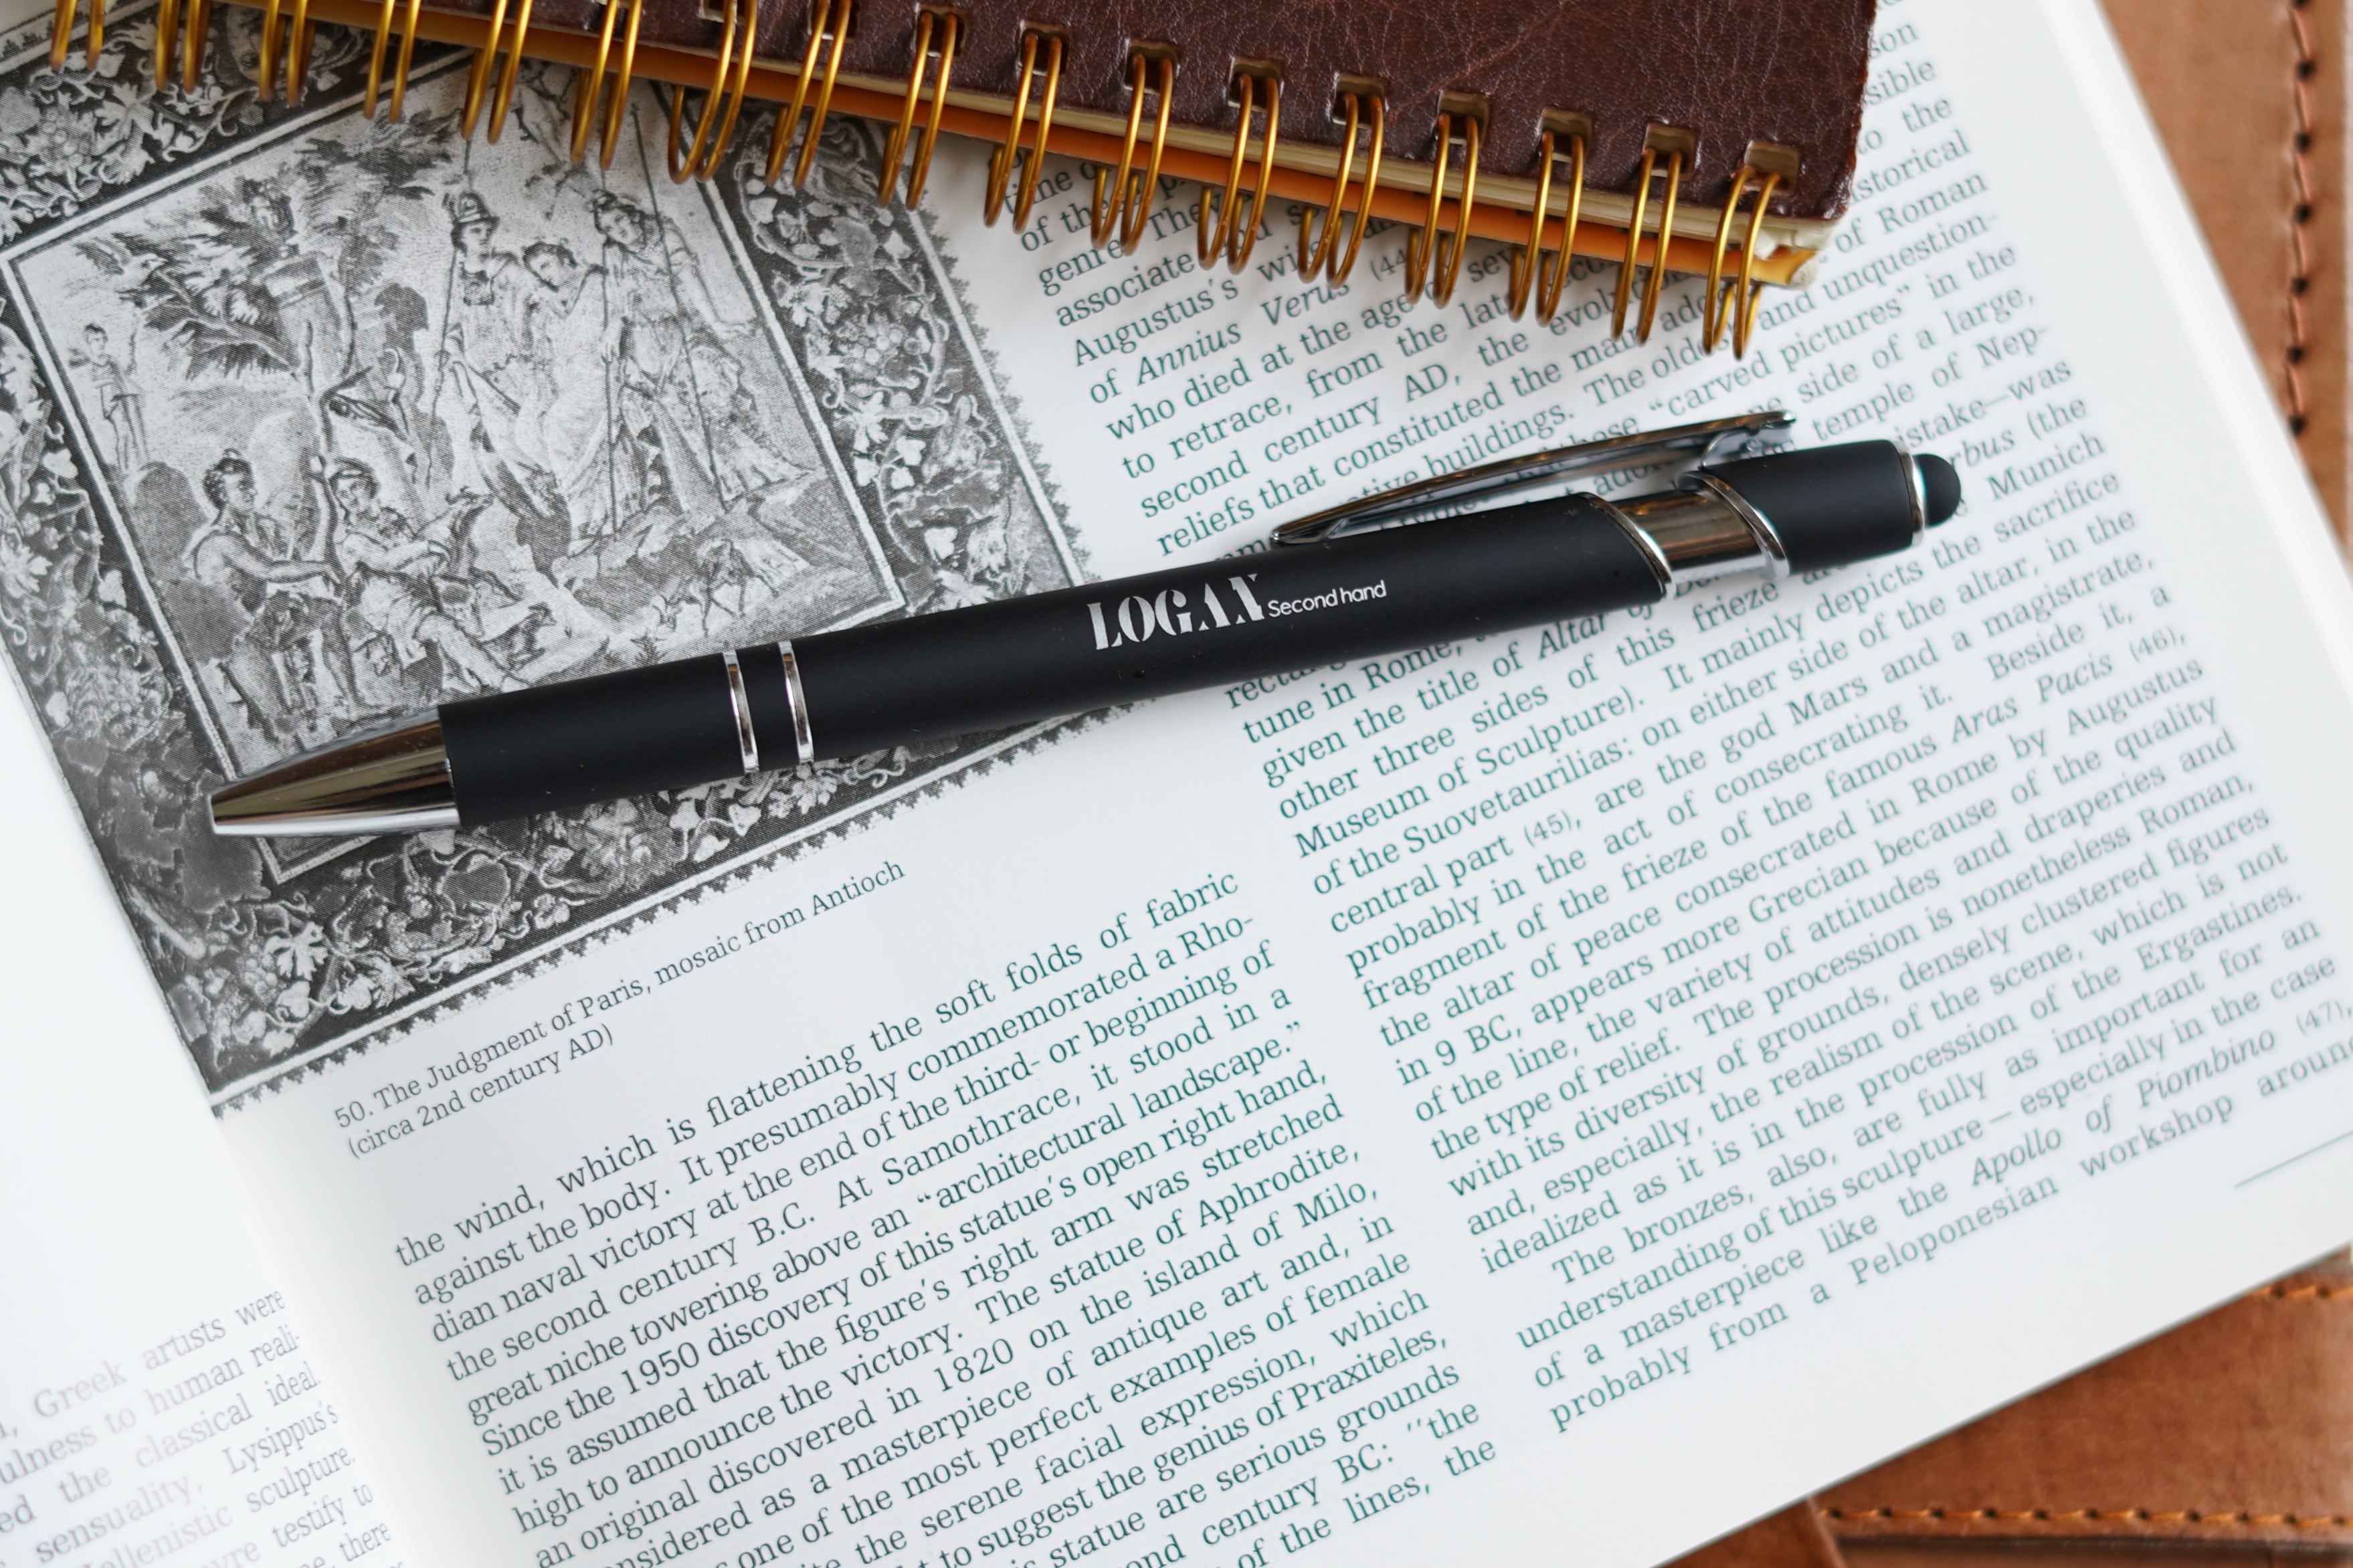 LOGAN Second hand
50. The Judgment of Paris, mosaic from Antioch
(circa 2nd century AD)
Greek artists were
to human reali-
the classical ideal.
sensuality, Lysippus's
sculpture.
testify to
there
the wind, which is flattening the soft folds of fabric
against the body. It presumably commemorated a Rho-
dian naval victory at the end of the third- or beginning of
the second century B.C. At Samothrace, it stood in a
great niche towering above an “architectural landscape.”
Since the 1950 discovery of this statue's open right hand,
it is assumed that the figure's right arm was stretched
high to announce the victory. The statue of Aphrodite,
an original discovered in 1820 on the island of Milo,
as a masterpiece of antique art and, in
one of the most perfect examples of female
the serene facial expression, which
to suggest the genius of Praxiteles,
statue are serious grounds
century BC: "the
of the lines, the
of the
genre. They
associate
Augustus's
of Annius Verus (44
who died at the age
to retrace, from the
second century AD, the
reliefs that constituted the main
buildings. The
“carved pictures” in the
side of a large,
temple of Nep-
son
the
of Roman
and unquestion-
(the
Munich
tune in Rome,
given the title of Altar of
other three sides of this frieze
Museum of Sculpture). It mainly depicts the sacrifice
of the Suovetaurilias: on either side of the altar, in the
central part (45), are the god Mars and a magistrate,
probably in the act of consecrating it. Beside it, a
fragment of the frieze of the famous Aras Pacis (46),
the altar of peace consecrated in Rome by Augustus
in 9 BC, appears more Grecian because of the quality
of the line, the variety of attitudes and draperies and
the type of relief. The procession is nonetheless Roman,
with its diversity of grounds, densely clustered figures
and, especially, the realism of the scene, which is not
idealized as it is in the procession of the Ergastines.
The bronzes, also, are fully as important for an
understanding of this sculpture—especially in the case
of a masterpiece like the Apollo of Piombino (47),
probably from a Peloponesian workshop around